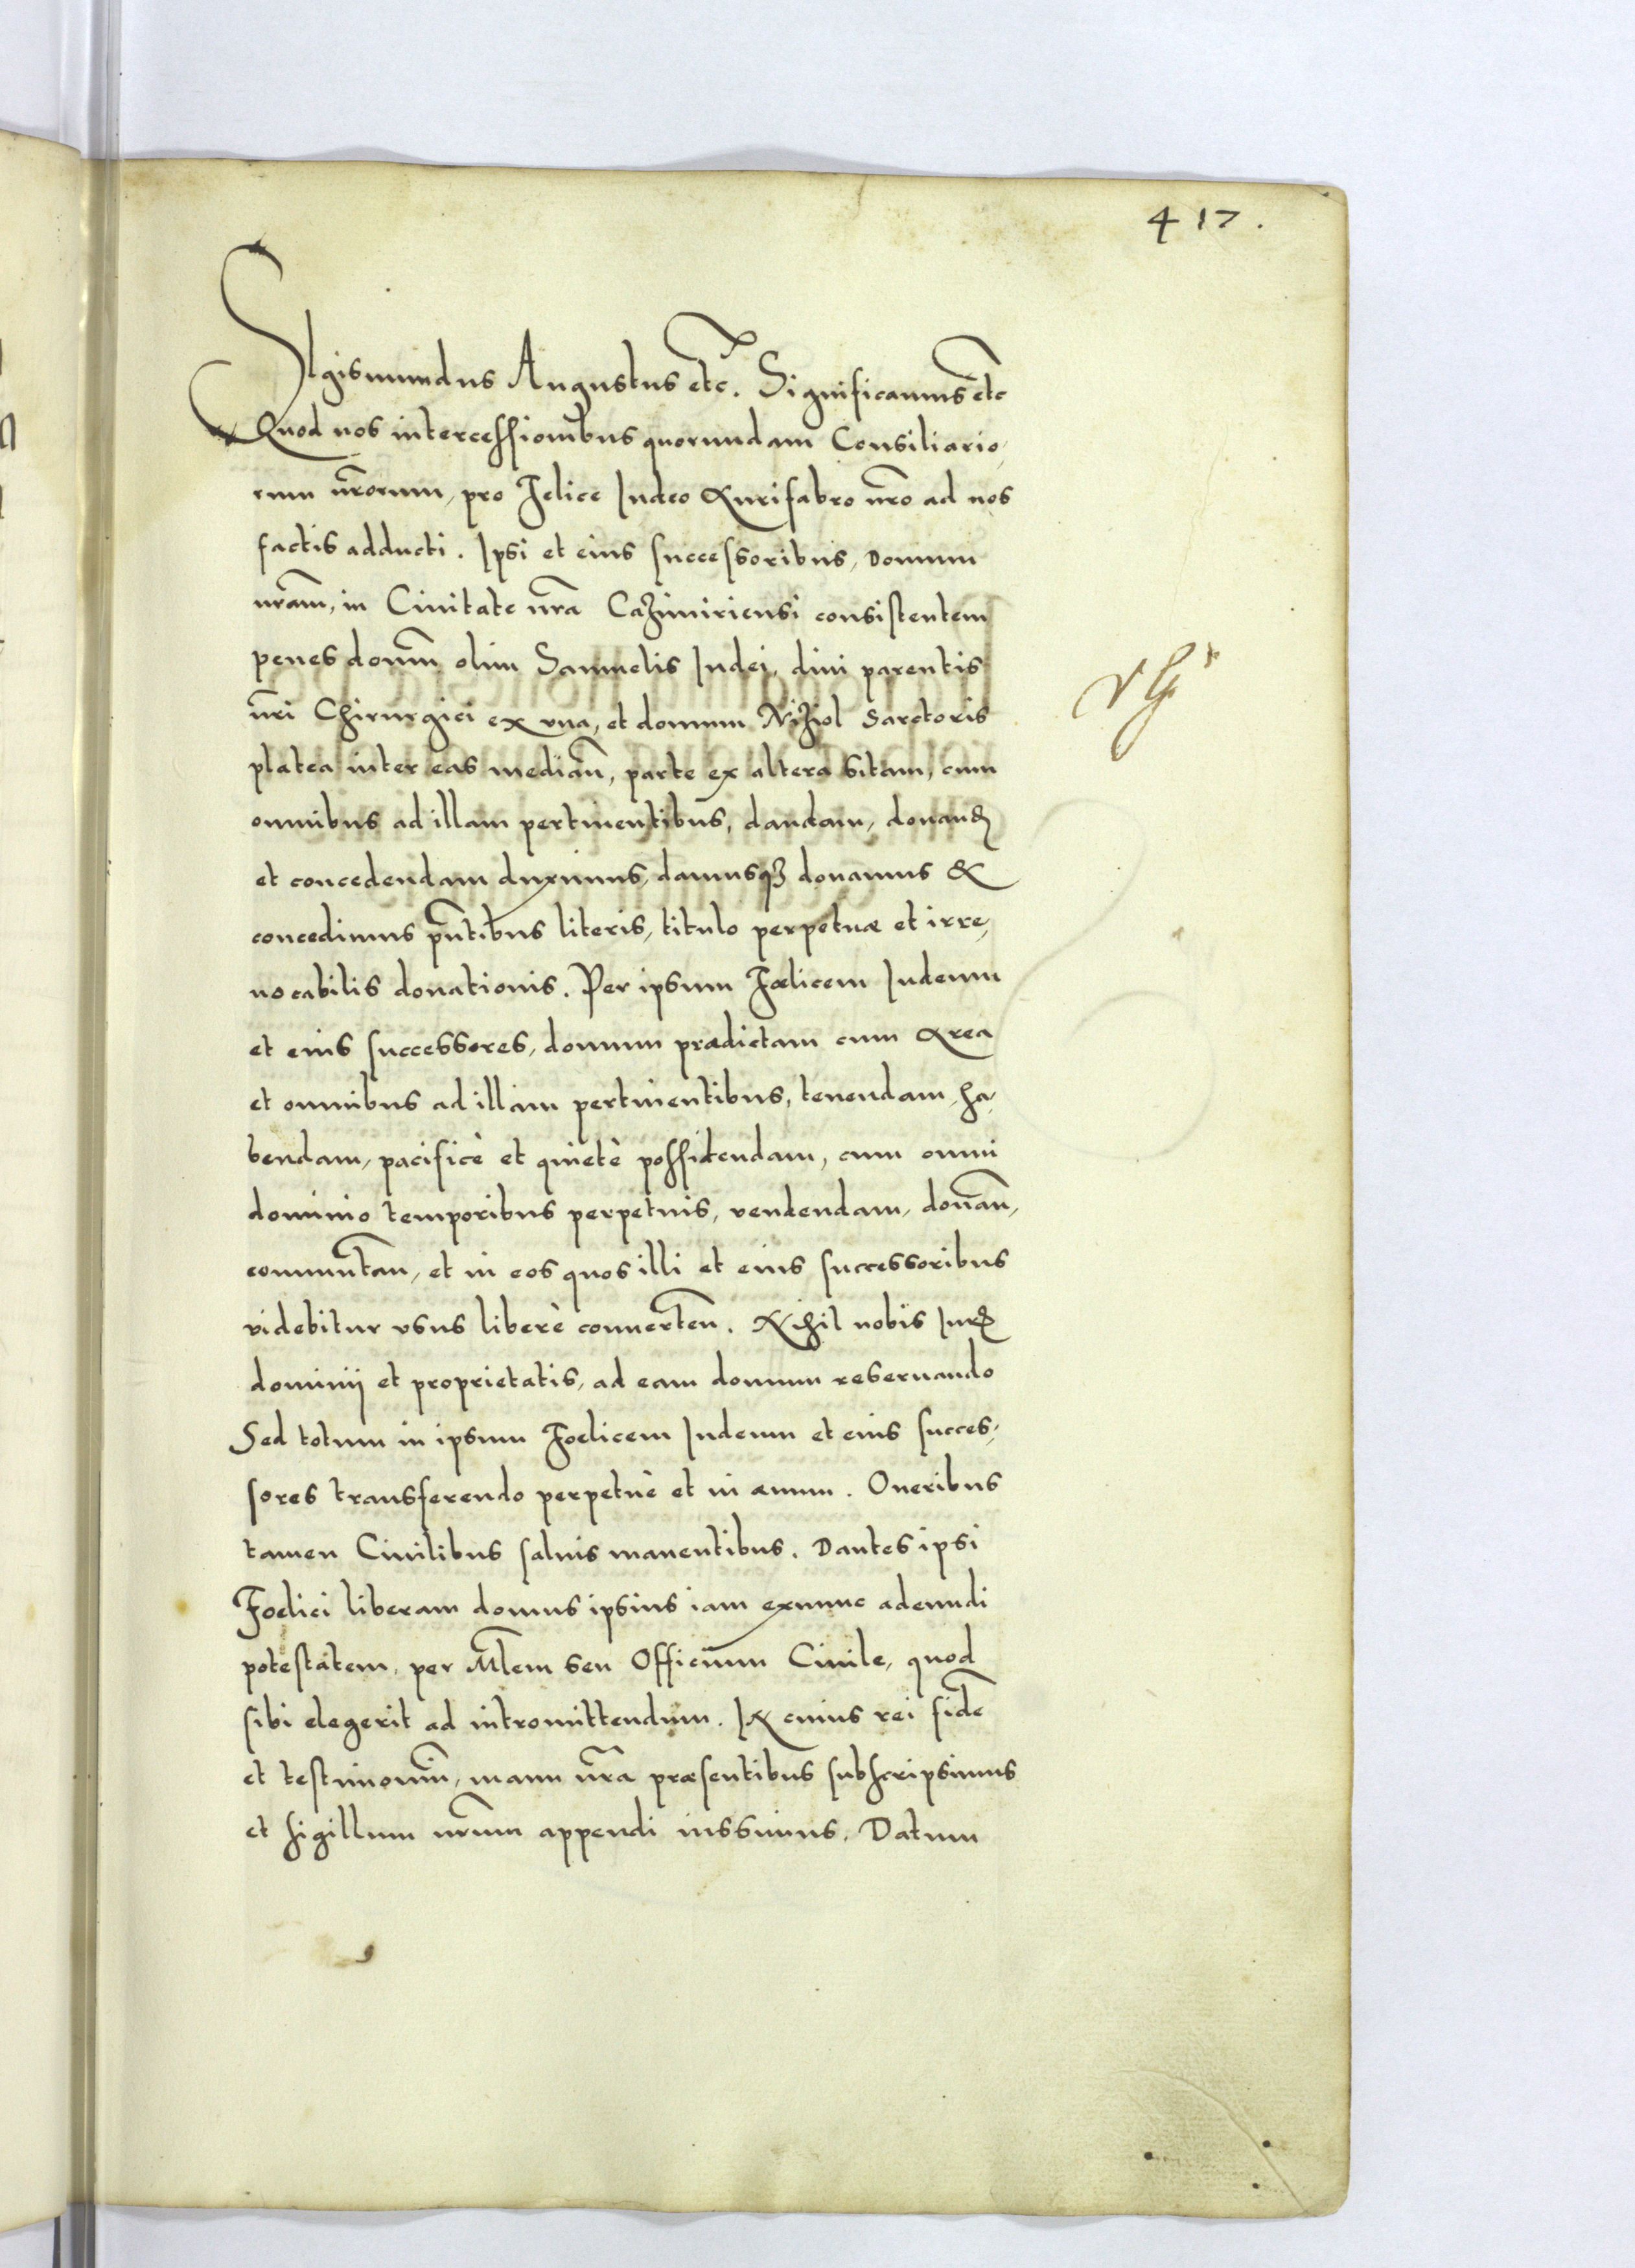 417.
Sigismundus Augustus etc. Significamus etc
Quod nos intercessionibus quorundam Consiliario,
rum nrorum, pro Felice Iudeo Aurifabro nro ad nos
factis adducti. Ipsi et eius successoribus, Domum
nram, in Ciuitate nra Cazimiriensi consistentem
penes domum olim Samuelis Iudei, diui parentis
nri Chirurgici ex vna, et domum Niziol Sarctoris
platea inter eas median, parte ex altera sitam, cum
omnibus ad illam pertinentibus, dandam, donand
et concedendam duximus, damusqz donamus &
concedimus pntibus literis, titulo perpetuæ et irre,
uocabilis donationis. Per ipsum Fælicem Iudeum
et eius successores, domum prædictam cum Area
et omnibus ad illam pertinentibus, tenendam, ha,
bendam, pacificè et quietè possidendam, cum omni
dominio temporibus perpetuis, vendendam, donan,
commutan, et in eos quos illi et eius successoribus
videbitur vsus liberè conuerten. Nihil nobis Iuris
dominij et proprietatis, ad eam domum reseruando
Sed totum in ipsum Foelicem Iudeum et eius succes,
sores transferendo perpetuè et in æuum. Oneribus
tamen Ciuilibus saluis manentibus. Dantes ipsi
Foelici liberam domus ipsius iam exnunc adeundi
potestatem, per Mlem seu Officium Ciuile, quod
sibi elegerit ad intromittendum. IN cuius rei fidē
et testimonium, manu nra præsentibus subscripsimus
et sigillum nrum appendi iussimus. Datum